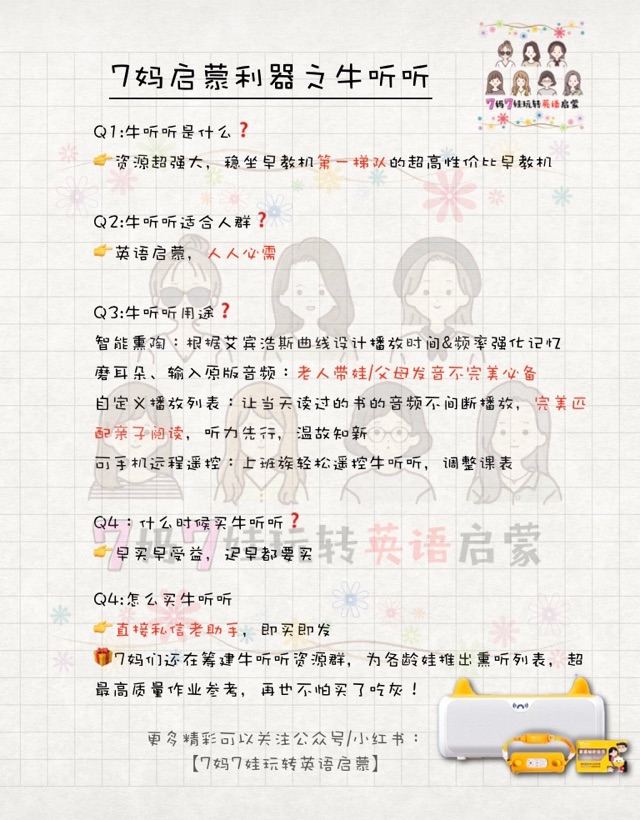 7妈启蒙利器之牛听听
7妈7娃玩转英语启蒙
Q1:牛听听是什么❓
👉资源超强大，稳坐早教机第一梯队的超高性价比早教机
Q2:牛听听适合人群❓
👉英语启蒙，人人必需
Q3:牛听听用途❓
智能熏陶：根据艾宾浩斯曲线设计播放时间&频率强化记忆
磨耳朵、输入原版音频：老人带娃/父母发音不完美必备
自定义播放列表：让当天读过的书的音频不间断播放，完美匹
配亲子阅读，听力先行，温故知新
可手机远程遥控：上班族轻松遥控牛听听，调整课表
Q4：什么时候买牛听听❓
👉早买早受益，迟早都要买
7妈7娃玩转英语启蒙
Q4:怎么买牛听听
👉直接私信老助手，即买即发
🎁7妈们还在筹建牛听听资源群，为各龄娃推出熏听列表，超
最高质量作业参考，再也不怕买了吃灰！
更多精彩可以关注公众号/小红书：
【7妈7娃玩转英语启蒙】